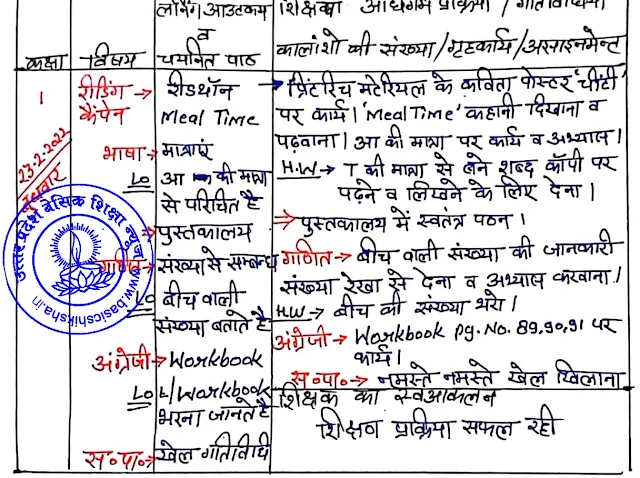 लर्निंग आउटकम
व
चयनित पाठ
शिक्षण अधिगम प्रक्रिया / गतिविधियाँ
कालांशो की संख्या/गृहकार्य/असाइनमेन्ट
कक्षा विषय
1
23-2-2022
बुधवार
रीडिंग → रीडथॉन
कैंपेन Meal Time
भाषा → मात्राएं
LO आ की मात्रा
से परिचित है
→ पुस्तकालय
गणित → संख्या से सम्बन्ध
LO बीच वाली
संख्या बताते है
अंग्रेजी → Workbook
LO L/Workbook
भरना जानते है
स०पा० → खेल गतिविधि
→ प्रिंटरिच मटेरियल के कविता पोस्टर 'चींटी'
पर कार्य। 'Meal Time' कहानी दिखाना व
पढ़वाना। आ की मात्रा पर कार्य व अभ्यास।
H.W → T की मात्रा से बने शब्द कॉपी पर
पढ़ने व लिखने के लिए देना।
→ पुस्तकालय में स्वतंत्र पठन।
गणित → बीच वाली संख्या की जानकारी
संख्या रेखा से देना व अभ्यास करवाना।
H.W → बीच की संख्या भरो।
अंग्रेजी → Workbook pg. No. 89,90,91 पर
कार्य।
स०पा० → नमस्ते नमस्ते खेल खिलाना
शिक्षक का स्वआकलन
शिक्षण प्रक्रिया सफल रही
उत्तर प्रदेश बेसिक शिक्षा न्यूज
www.basicshiksha.in